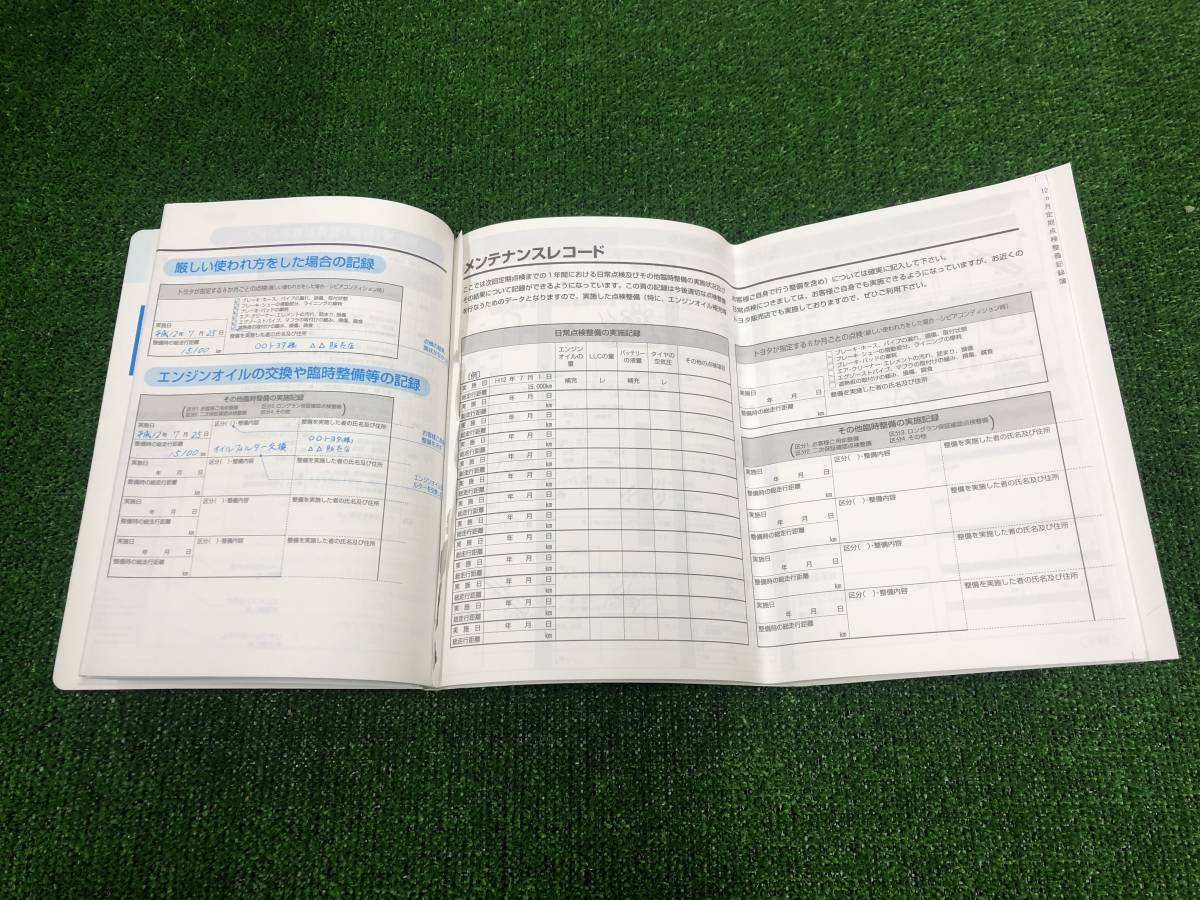 厳しい使われ方をした場合の記録
トヨタが指定する6か月ごとの点検(厳しい使われ方をした場合…シビアコンディション時)
ブレーキ・ホース、パイプの漏れ、損傷、取付状態
ブレーキ・シューの摺動部分、ライニングの摩耗
ブレーキ・パッドの摩耗
エア・クリーナー・エレメントの汚れ、詰まり、損傷
エグゾーストパイプ、マフラの取付けの緩み、損傷、腐食
遮熱板の取付けの緩み、損傷、腐食
実施日
平成12年 7月 25日
整備時の総走行距離
15100 km
整備を実施した者の氏名及び住所
○○トヨタ㈱ △△販売店
エンジンオイルの交換や臨時整備等の記録
その他臨時整備の実施記録
区分1. お客様ご用命整備 区分3. ロングラン保証確認点検整備
区分2. 二次保証確認点検整備 区分4. その他
実施日
平成12年 7月 25日
整備時の総走行距離
15100 km
区分(1)・整備内容
オイルフィルター交換
整備を実施した者の氏名及び住所
○○トヨタ㈱
△△販売店
実施日
年 月 日
整備時の総走行距離
km
区分( )・整備内容
整備を実施した者の氏名及び住所
実施日
年 月 日
整備時の総走行距離
km
区分( )・整備内容
整備を実施した者の氏名及び住所
実施日
年 月 日
整備時の総走行距離
km
区分( )・整備内容
整備を実施した者の氏名及び住所
メンテナンスレコード
ここでは次回定期点検までの1年間における日常点検及びその他臨時整備の実施状況及び
その結果について記録ができるようになっています。この頁の記録は今後適切な点検整備
を行なうためのデータとなりますので、実施した点検整備(特に、エンジンオイル補充等
日常点検整備の実施記録
エンジンオイルの量
LLCの量
バッテリーの液量
タイヤの空気圧
その他の点検項目
(例)
実施日 H12年 7月 1日 補充 レ 補充 レ
総走行距離 15,000km
実施日 年 月 日
総走行距離 km
実施日 年 月 日
総走行距離 km
実施日 年 月 日
総走行距離 km
実施日 年 月 日
総走行距離 km
実施日 年 月 日
総走行距離 km
実施日 年 月 日
総走行距離 km
実施日 年 月 日
総走行距離 km
実施日 年 月 日
総走行距離 km
実施日 年 月 日
総走行距離 km
実施日 年 月 日
総走行距離 km
実施日 年 月 日
総走行距離 km
お客様ご自身で行う整備を含め)については確実に記入して下さい。
日常点検につきましては、お客様ご自身でも実施できるようになっていますが、お近くの
トヨタ販売店でも実施しておりますので、ぜひご利用下さい。
トヨタが指定する6か月ごとの点検(厳しい使われ方をした場合…シビアコンディション時)
ブレーキ・ホース、パイプの漏れ、損傷、取付状態
ブレーキ・シューの摺動部分、ライニングの摩耗
ブレーキ・パッドの摩耗
エア・クリーナー・エレメントの汚れ、詰まり、損傷
エグゾーストパイプ、マフラの取付けの緩み、損傷、腐食
遮熱板の取付けの緩み、損傷、腐食
実施日
年 月 日
整備時の総走行距離
km
整備を実施した者の氏名及び住所
その他臨時整備の実施記録
区分1. お客様ご用命整備 区分3. ロングラン保証確認点検整備
区分2. 二次保証確認点検整備 区分4. その他
実施日
年 月 日
整備時の総走行距離
km
区分( )・整備内容
整備を実施した者の氏名及び住所
実施日
年 月 日
整備時の総走行距離
km
区分( )・整備内容
整備を実施した者の氏名及び住所
実施日
年 月 日
整備時の総走行距離
km
区分( )・整備内容
整備を実施した者の氏名及び住所
実施日
年 月 日
整備時の総走行距離
km
区分( )・整備内容
整備を実施した者の氏名及び住所
12か月定期点検整備記録簿